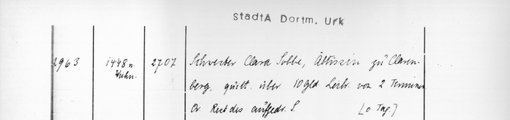 StadtA Dortm. Urk
2963 1448 n. 2707 Schwester Clara Sobbe, Äbtissin zu Claren-
berg, quitt. über 10 Gld Leibr. von 2 Terminen
Or Rest des aufgedr. S [o Tag]